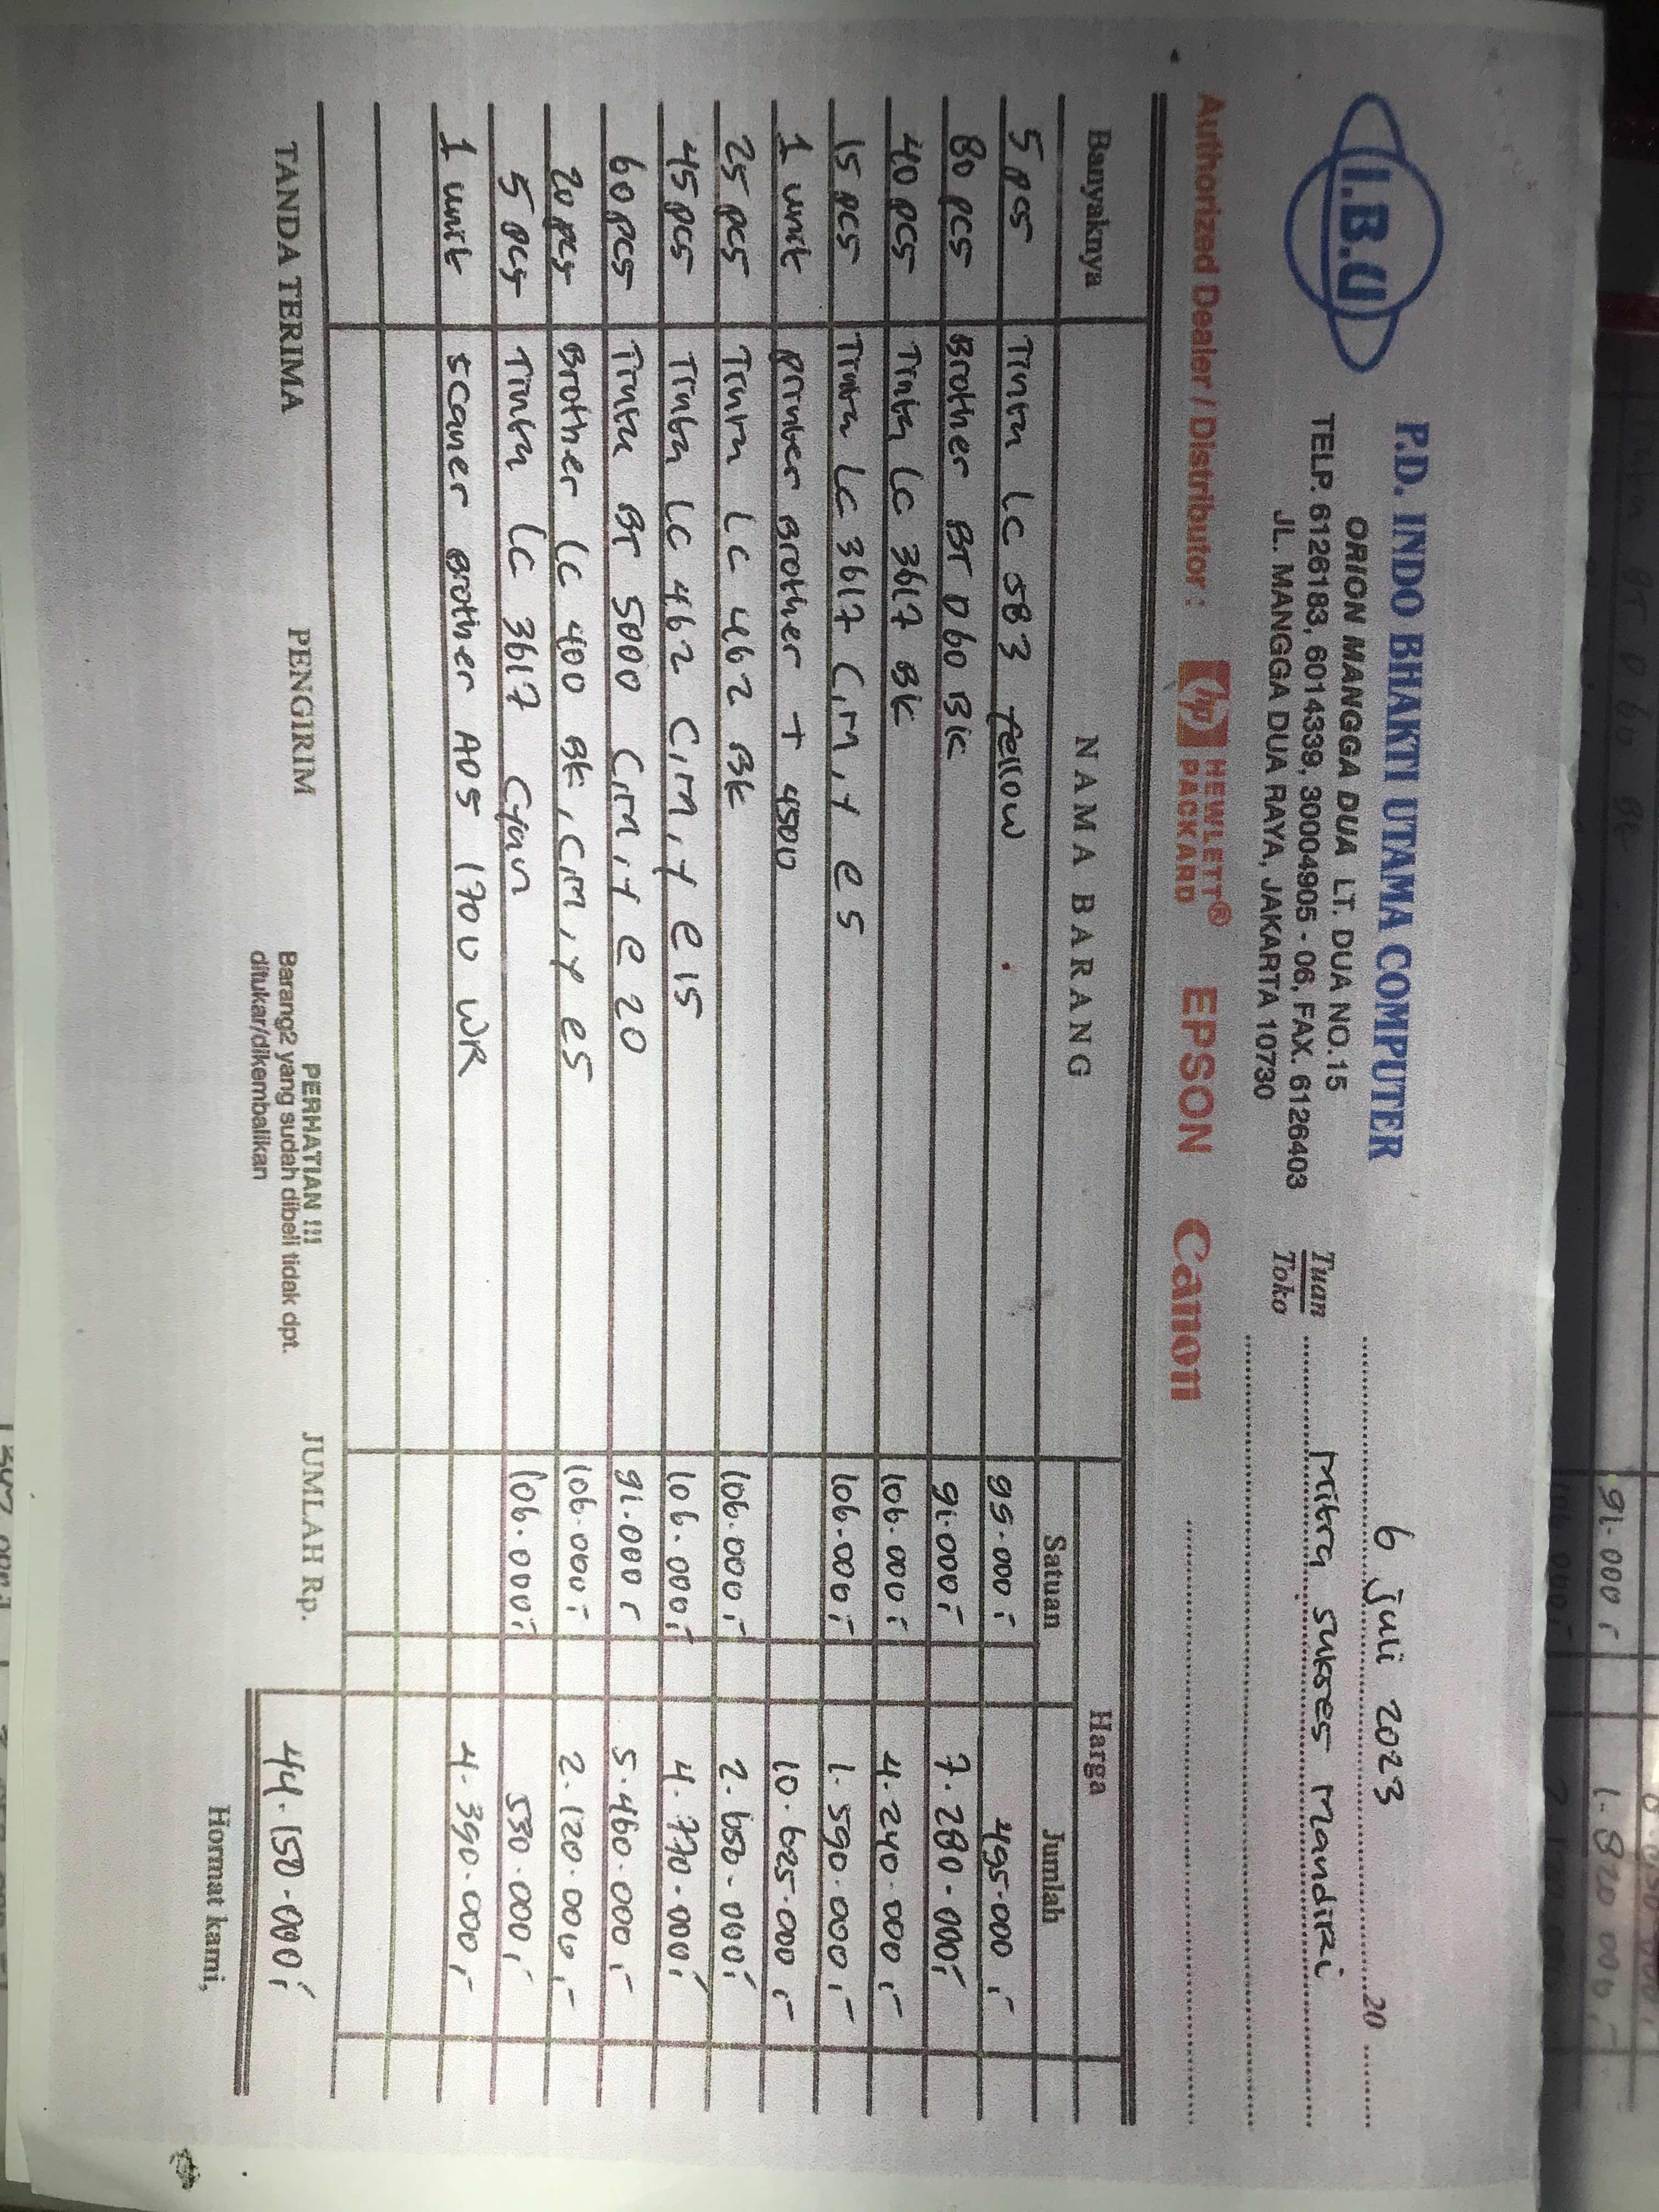 I.B.U
P.D. INDO BHAKTI UTAMA COMPUTER
ORION MANGGA DUA LT. DUA NO.15
TELP. 6126183, 6014339, 30004905 - 06, FAX. 6126403
JL. MANGGA DUA RAYA, JAKARTA 10730
6 juli 2023 20
Tuan Mitra sukses Mandiri
Toko
Authorized Dealer / Distributor : hp HEWLETT® PACKARD EPSON Canon
Banyaknya NAMA BARANG Harga
Satuan Jumlah
5 pcs Tinta LC 583 Yellow 99.000,- 495.000,-
80 pcs Brother BT D60 BK 91.000,- 7.280.000,-
40 pcs Tinta LC 3617 BK 106.000,- 4.240.000,-
15 pcs Tinta LC 3617 C,M,Y @ 5 106.000,- 1.590.000,-
1 unit printer Brother T 4500 10.625.000,-
25 pcs Tinta LC 462 BK 106.000,- 2.650.000,-
45 pcs Tinta LC 462 C,M,Y @ 15 106.000,- 4.770.000,-
60 pcs Tinta BT 5000 C,M,Y @ 20 91.000,- 5.460.000,-
20 pcs Brother LC 400 BK, C,M,Y @5 106.000,- 2.120.000,-
5 pcs Tinta LC 3617 Cyan 106.000,- 530.000,-
1 unit scaner Brother ADS 1700 WR 4.390.000,-
TANDA TERIMA PENGIRIM JUMLAH Rp. 44.150.000,-
PERHATIAN !!!
Barang2 yang sudah dibeli tidak dpt.
ditukar/dikembalikan
Hormat kami,
91.000,- 1.820.000,-